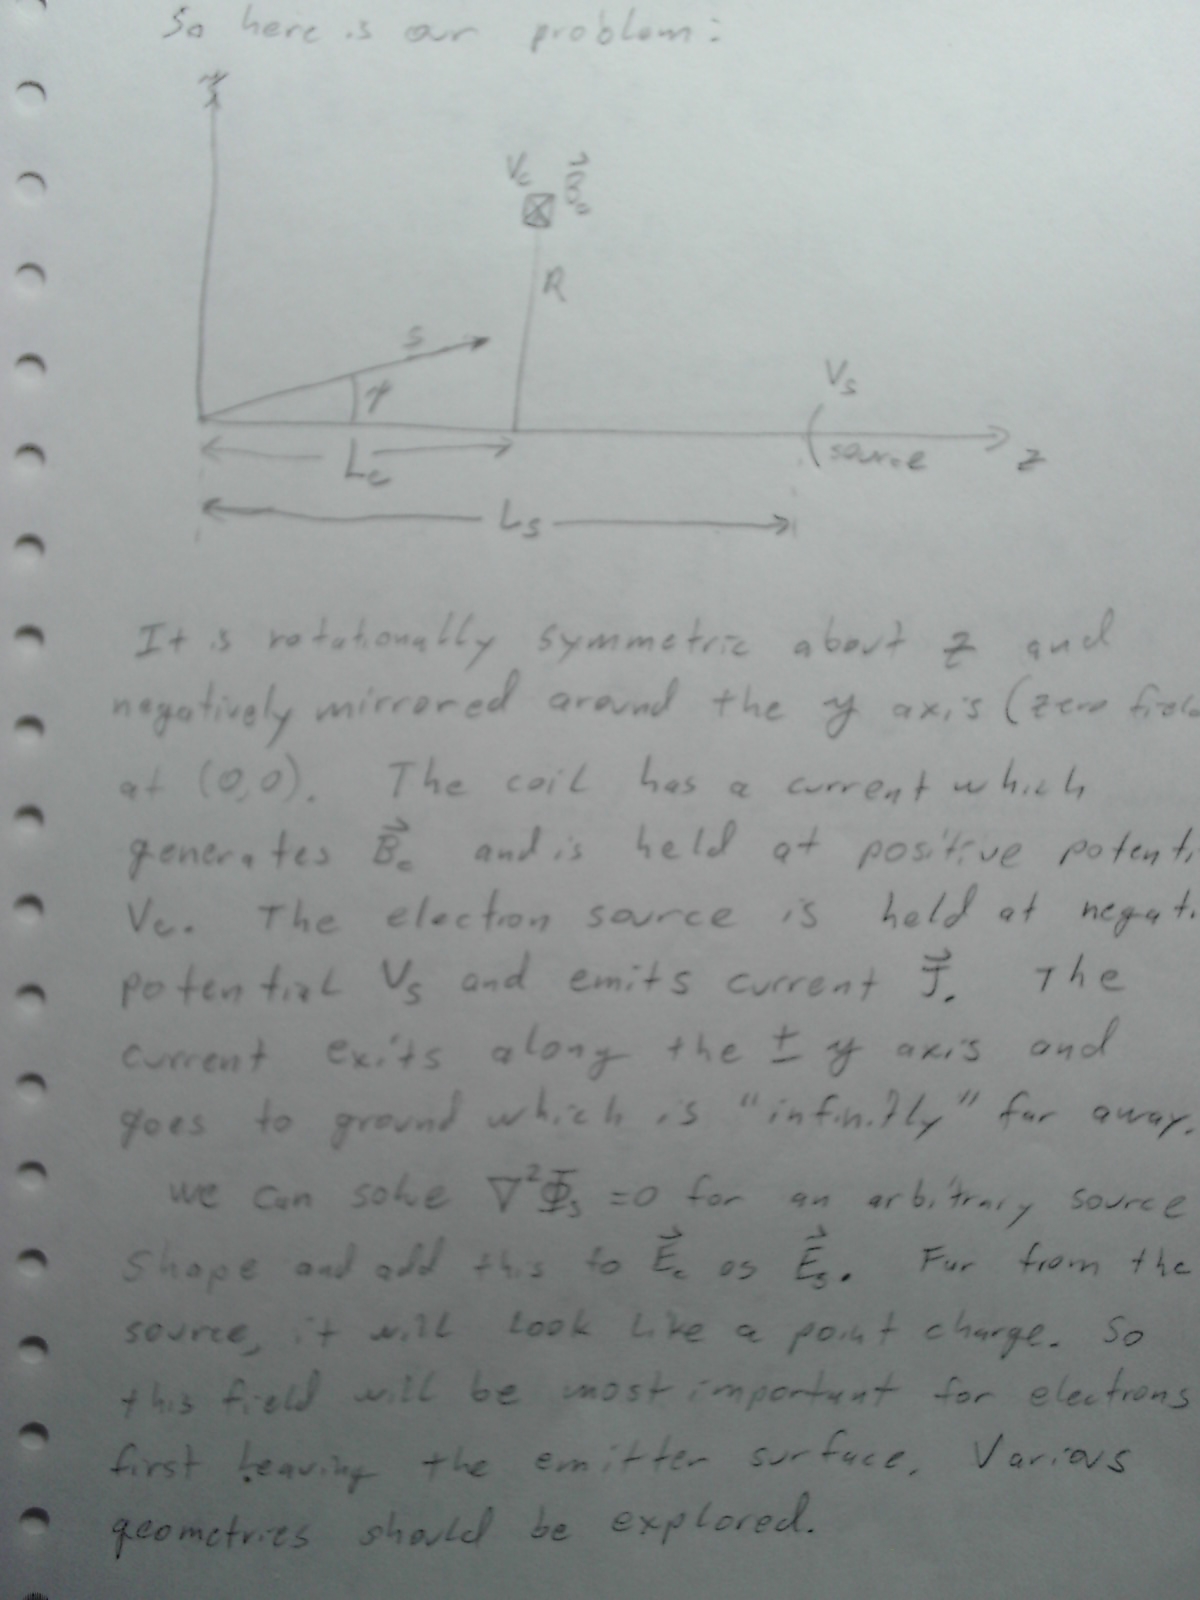 So here is our problem:
y
Vc B⃗c
R
s
Vs
source
z
Lc
Ls
It is rotationally symmetric about z and
negatively mirrored around the y axis (zero
at (0,0). The coil has a current which
generates B⃗c and is held at positive
Vc. The electron source is held at
potential Vs and emits current J⃗. The
current exits along the ± y axis and
goes to ground which is "infinitly" far away.
We can solve ∇²Φs = 0 for an arbitrary source
shape and add this to E⃗c as E⃗s. Far from the
source, it will look like a point charge. So
this field will be most important for electrons
first leaving the emitter surface. Various
geometries should be explored.